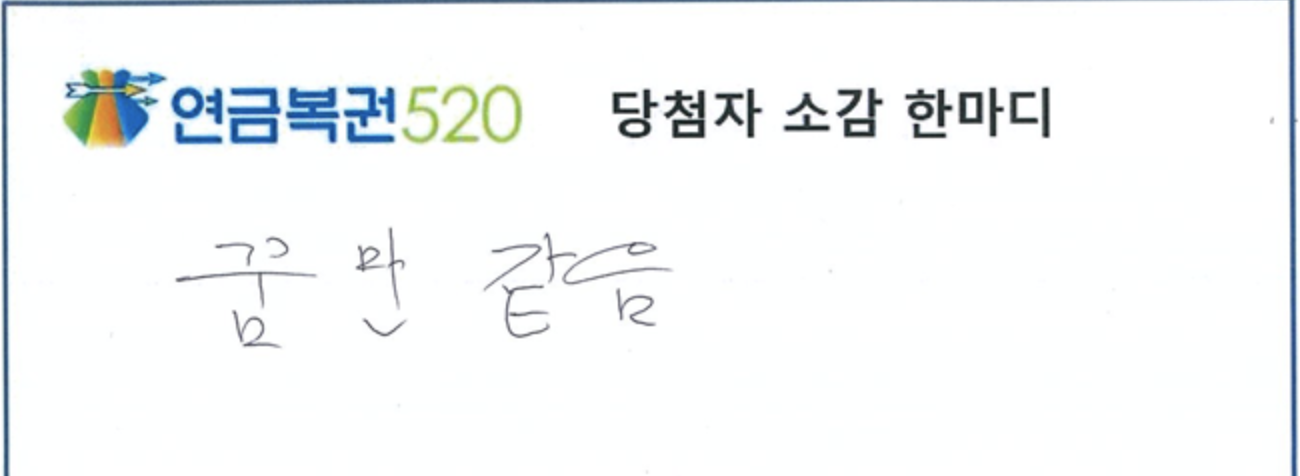 연금복권520 당첨자 소감 한마디
꿈만 같음